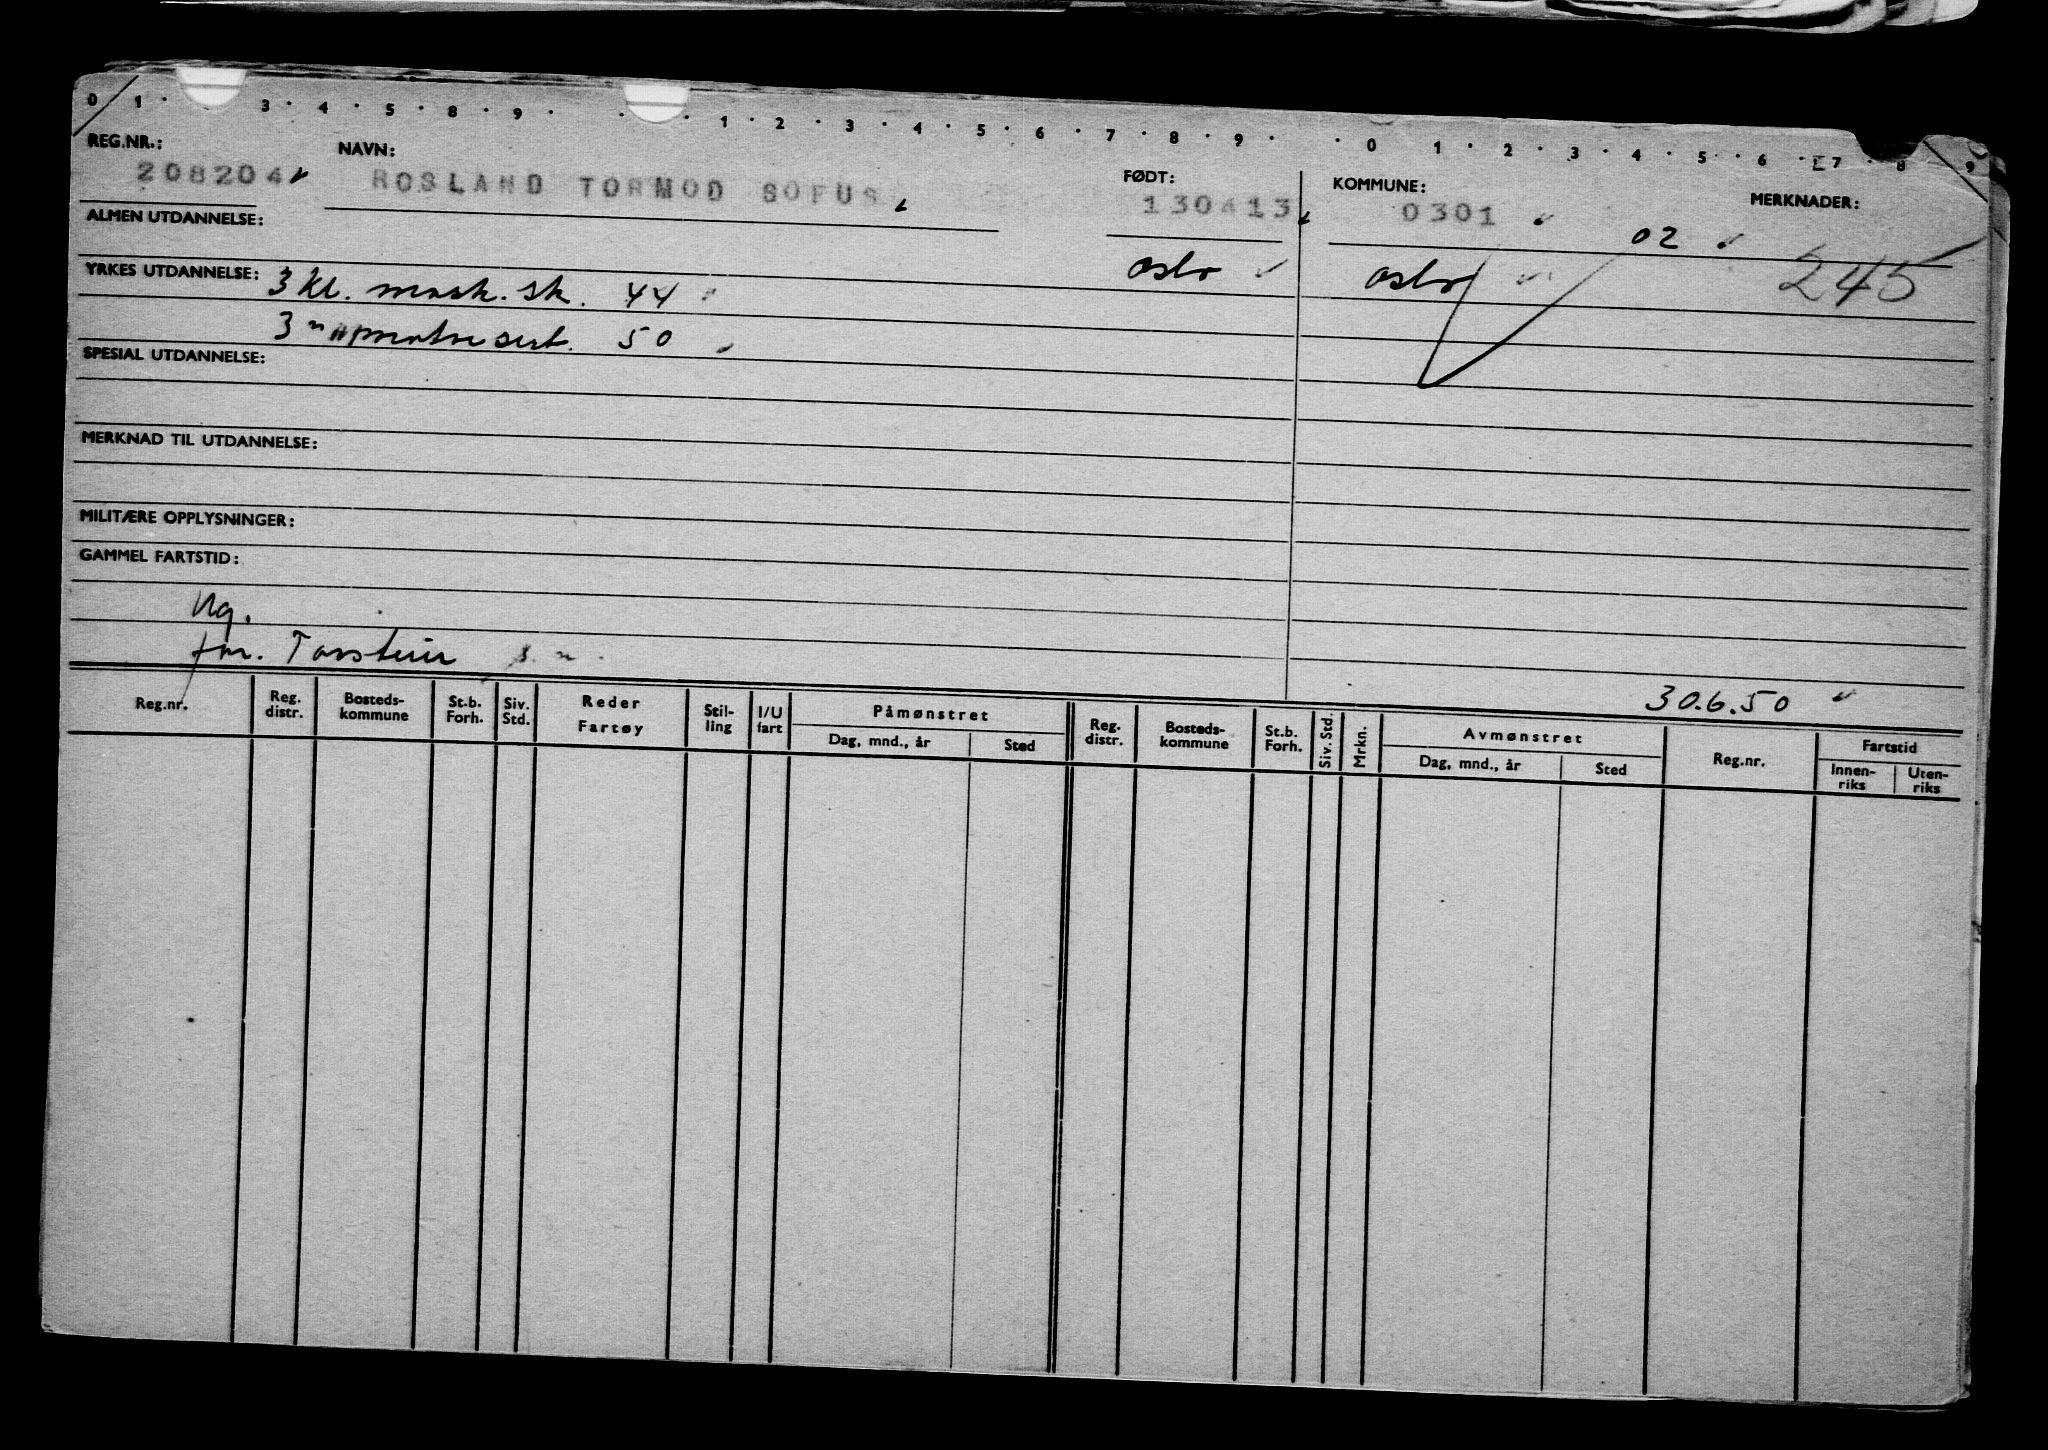 0 1 · 3 · 4 · 5 · 8 · 9 · · · 1 · 2 · 3 · 4 · 5 · 6 · 7 · 8 · 9 · · 0 · 1 · 2 · 3 · 4 · 5 · 6 · 7 · 8 9
REG.NR.: NAVN: FØDT: KOMMUNE: MERKNADER:
208204 ROSLAND TORMOD SOFUS 130413 0301
ALMEN UTDANNELSE: 02
Oslo Oslo 245
YRKES UTDANNELSE: 3 kl. mask. sk. 44
3 " sert. 50
SPESIAL UTDANNELSE:
MERKNAD TIL UTDANNELSE:
MILITÆRE OPPLYSNINGER:
GAMMEL FARTSTID:
Ug.
far. Torstein s. n.
30.6.50
Reg.nr. Reg. distr. Bosteds-kommune St.b. Forh. Siv. Std. Reder Fartøy Stil-ling I/U fart Påmønstret Dag, mnd., år Sted Reg. distr. Bosteds-kommune St.b. Forh. Siv. Std. Mrkn. Avmønstret Dag, mnd., år Sted Reg.nr. Fartstid Innen-riks Uten-riks